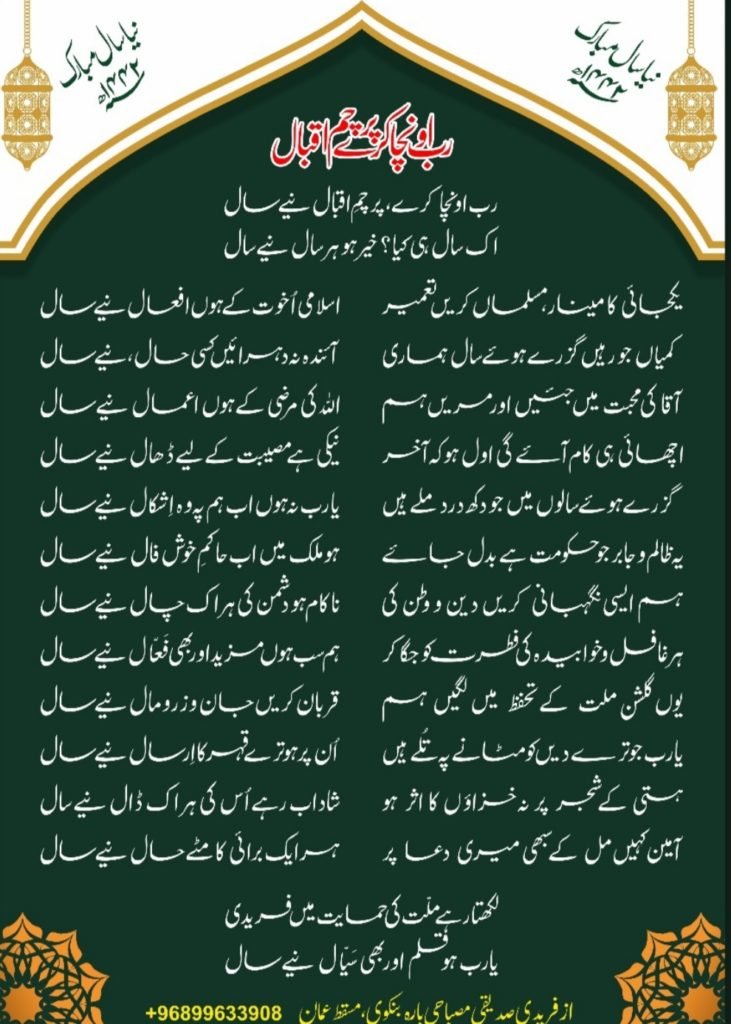 نیا سال مبارک
۱۴۴۲ھ
نیا سال مبارک
۱۴۴۲ھ
رب اونچا کرے پرچم اقبال
رب اونچا کرے، پرچمِ اقبال نیے سال
اک سال ہی کیا؟ خیر ہو ہر سال نیے سال
یکجائی کا مینار، مسلماں کریں تعمیر اسلامی اُخوت کے ہوں افعال نیے سال
کمیاں جو رہیں گزرے ہوئے سال ہماری آئندہ نہ دہرائیں کسی حال، نیے سال
آقا کی محبت میں جئیں اور مریں ہم اللہ کی مرضی کے ہوں اعمال نیے سال
اچھائی ہی کام آئے گی اول ہو کہ آخر نیکی ہے مصیبت کے لیے ڈھال نیے سال
گزرے ہوئے سالوں میں جو دکھ درد ملے ہیں یارب نہ ہوں اب ہم پہ وہ اِشکال نیے سال
یہ ظالم و جابر جو حکومت ہے بدل جائے ہو ملک میں اب حاکمِ خوش فال نیے سال
ہم ایسی نگہبانی کریں دین و وطن کی ناکام ہو دشمن کی ہر اک چال نیے سال
ہر غافل و خوابیدہ کی فطرت کو جگا کر ہم سب ہوں مزید اور بھی فَعّال نیے سال
یوں گلشن ملت کے تحفظ میں لگیں ہم قربان کریں جان و زر و مال نیے سال
یارب جو ترے دیں کو مٹانے پہ تُلے ہیں اُن پر ہو ترے قہر کا اِرسال نیے سال
ہستی کے شجر پر نہ خزاؤں کا اثر ہو شاداب رہے اُس کی ہر اک ڈال نیے سال
آمین کہیں مل کے سبھی میری دعا پر ہر ایک برائی کا مٹے حال نیے سال
لکھتا رہے ملّت کی حمایت میں فریدی
یارب ہو قلم اور بھی سَیّال نیے سال
از فریدی صدیقی مصباحی بارہ بنکوی، مسقط عمان +96899633908